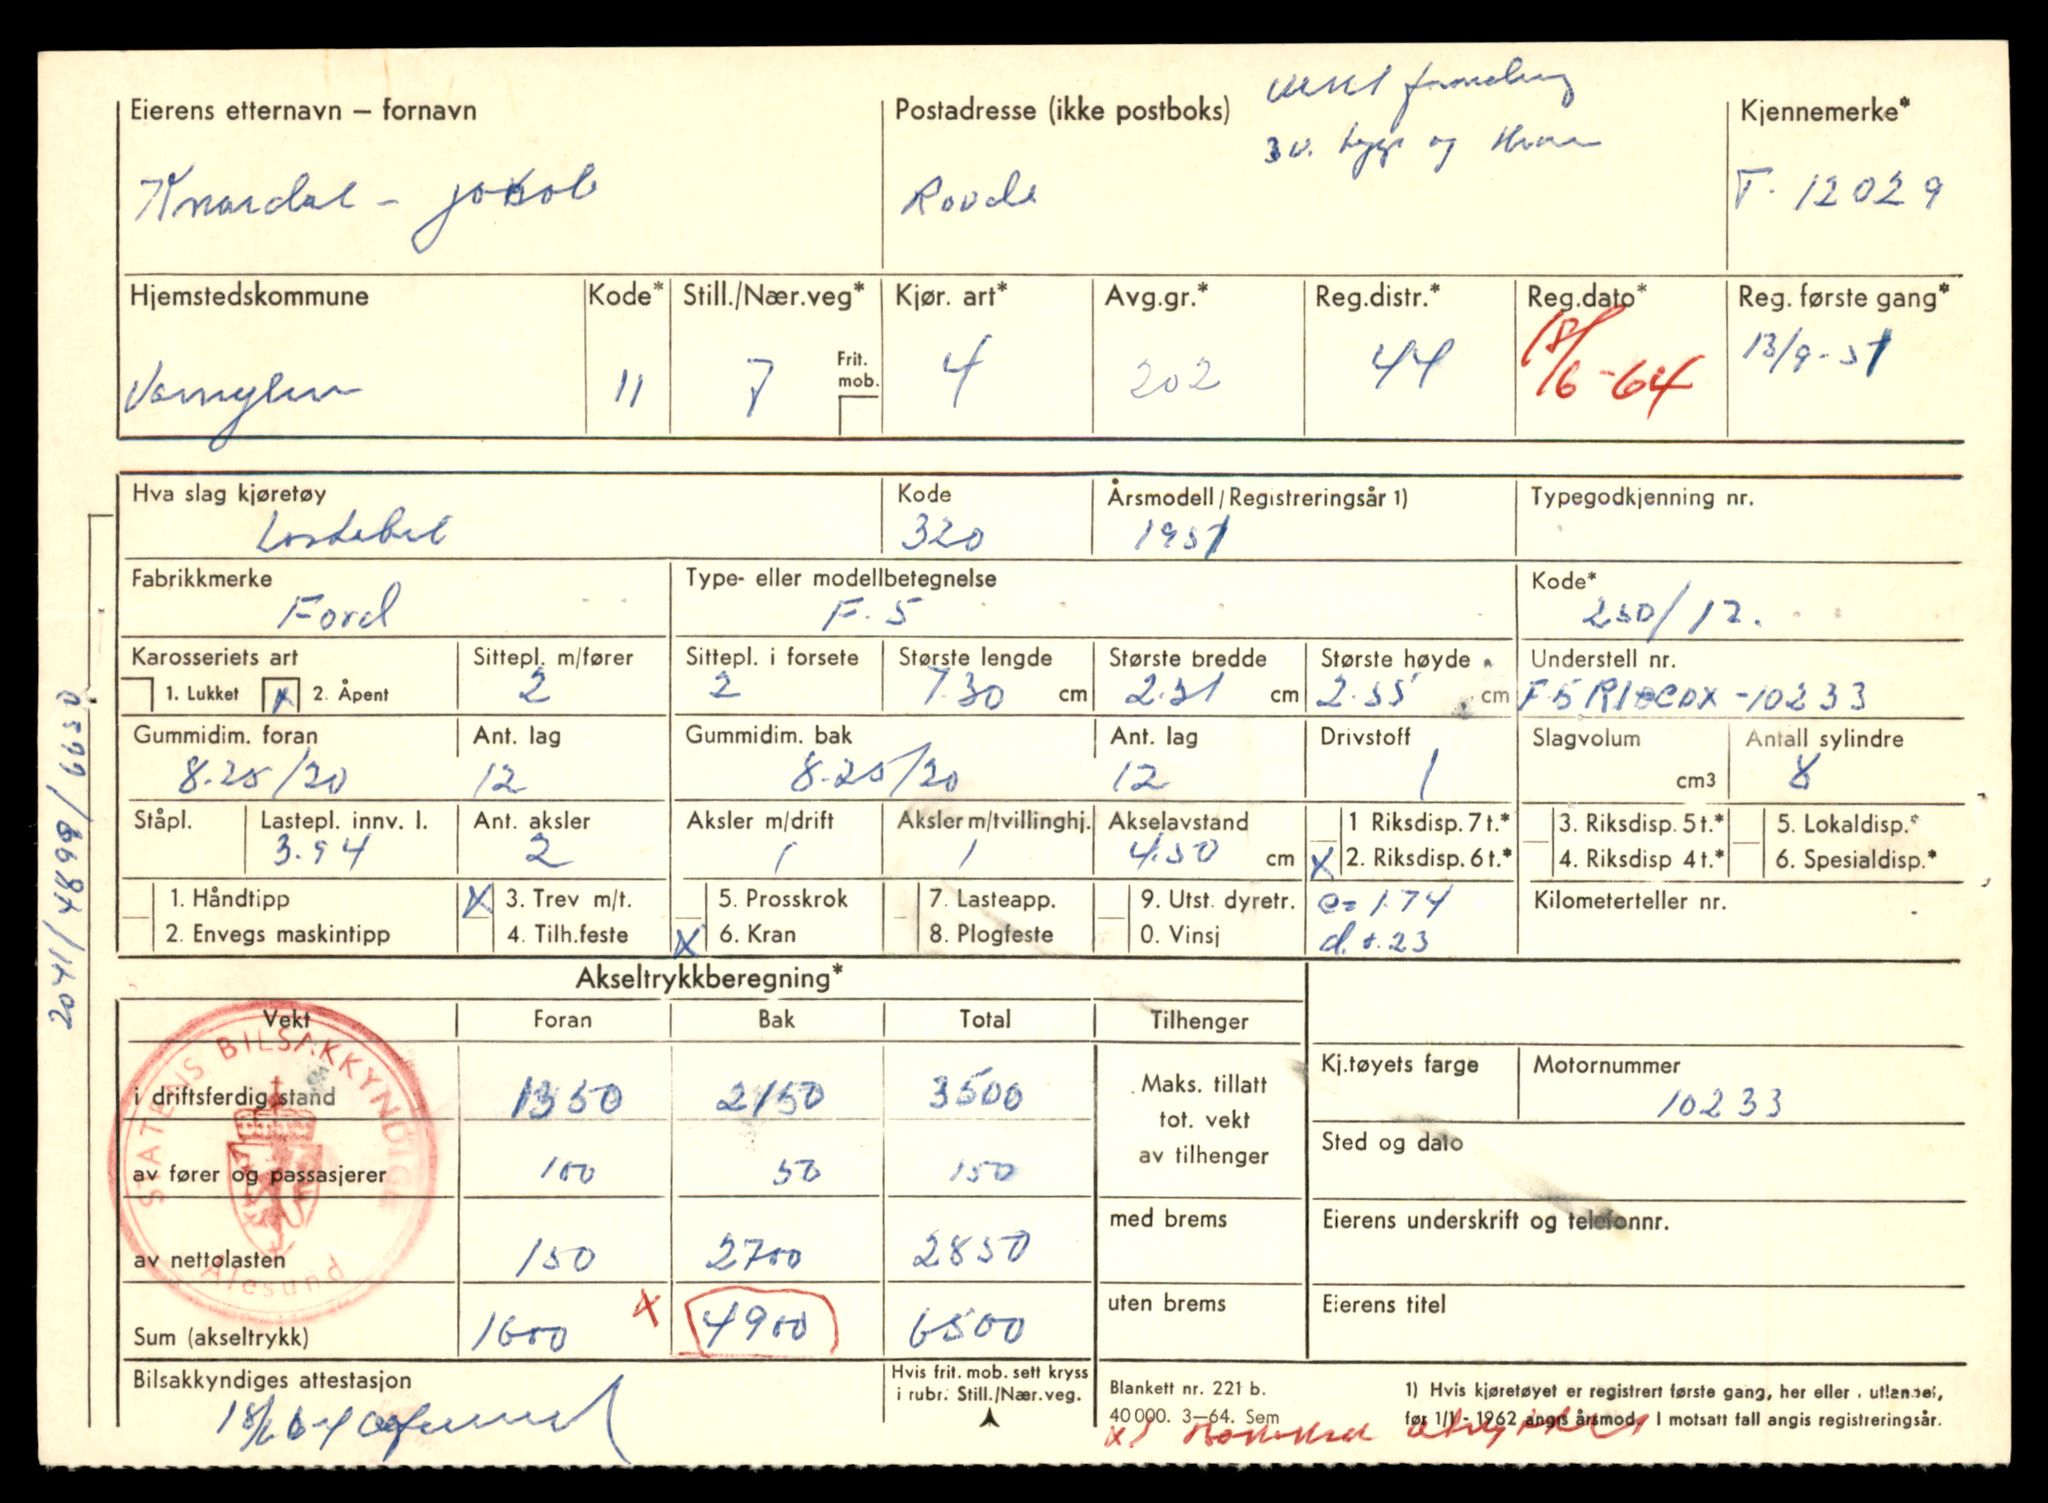 Eierens etternavn – fornavn
Knardal - Jakob
Postadresse (ikke postboks)
3 v.
og
Rovde
Kjennemerke*
T. 12029
Hjemstedskommune
Vannylven
Kode*
11
Still./Nær.veg*
7
Frit.
mob.
Kjør. art*
4
Avg.gr.*
202
Reg.distr.*
44
Reg.dato*
18/6-64
Reg. første gang*
13/9-51
Hva slag kjøretøy
Lastebil
Kode
320
Årsmodell/Registreringsår 1)
1951
Typegodkjenning nr.
Fabrikkmerke
Ford
Type- eller modellbetegnelse
F. 5
Kode*
250/12.
Karosseriets art
1. Lukket
x 2. Åpent
Sittepl. m/fører
2
Sittepl. i forsete
2
Største lengde
7.30 cm
Største bredde
2.31 cm
Største høyde
2.55 cm
Understell nr.
-10233
Gummidim. foran
8.25/20
Ant. lag
12
Gummidim. bak
8.25/20
Ant. lag
12
Drivstoff
1
Slagvolum
cm3
Antall sylindre
8
Ståpl.
Lastepl. innv. l.
3.94
Ant. aksler
2
Aksler m/drift
1
Aksler m/tvillinghj.
1
Akselavstand
4.50 cm
1 Riksdisp. 7 t.*
x 2. Riksdisp. 6 t.*
3. Riksdisp. 5 t.*
4. Riksdisp 4 t.*
5. Lokaldisp.*
6. Spesialdisp.*
1. Håndtipp
2. Envegs maskintipp
x 3. Trev m/t.
4. Tilh.feste
5. Prosskrok
x 6. Kran
7. Lasteapp.
8. Plogfeste
9. Utst. dyretr.
0. Vinsj
e= 1.74
23
Kilometerteller nr.
Akseltrykkberegning*
Vekt
Foran
Bak
Total
Tilhenger
i driftsferdig stand
1350
2150
3500
Maks. tillatt
tot. vekt
av tilhenger
av fører og passasjerer
100
50
150
av nettolasten
150
2700
2850
med brems
Sum (akseltrykk)
1600
x
4900
6500
uten brems
Kj.tøyets farge
Motornummer
10233
Sted og dato
Eierens underskrift og telefonnr.
Eierens titel
Bilsakkyndiges attestasjon
18/6 64
Hvis frit. mob. sett kryss
i rubr. Still./Nær.veg.
Blankett nr. 221 b.
40 000. 3—64. Sem
1) Hvis kjøretøyet er registrert første gang, her eller i utlandet,
før 1/1 - 1962 angis årsmod. I motsatt fall angis registreringsår.
STATENS BILSAKKYNDIGE
Ålesund